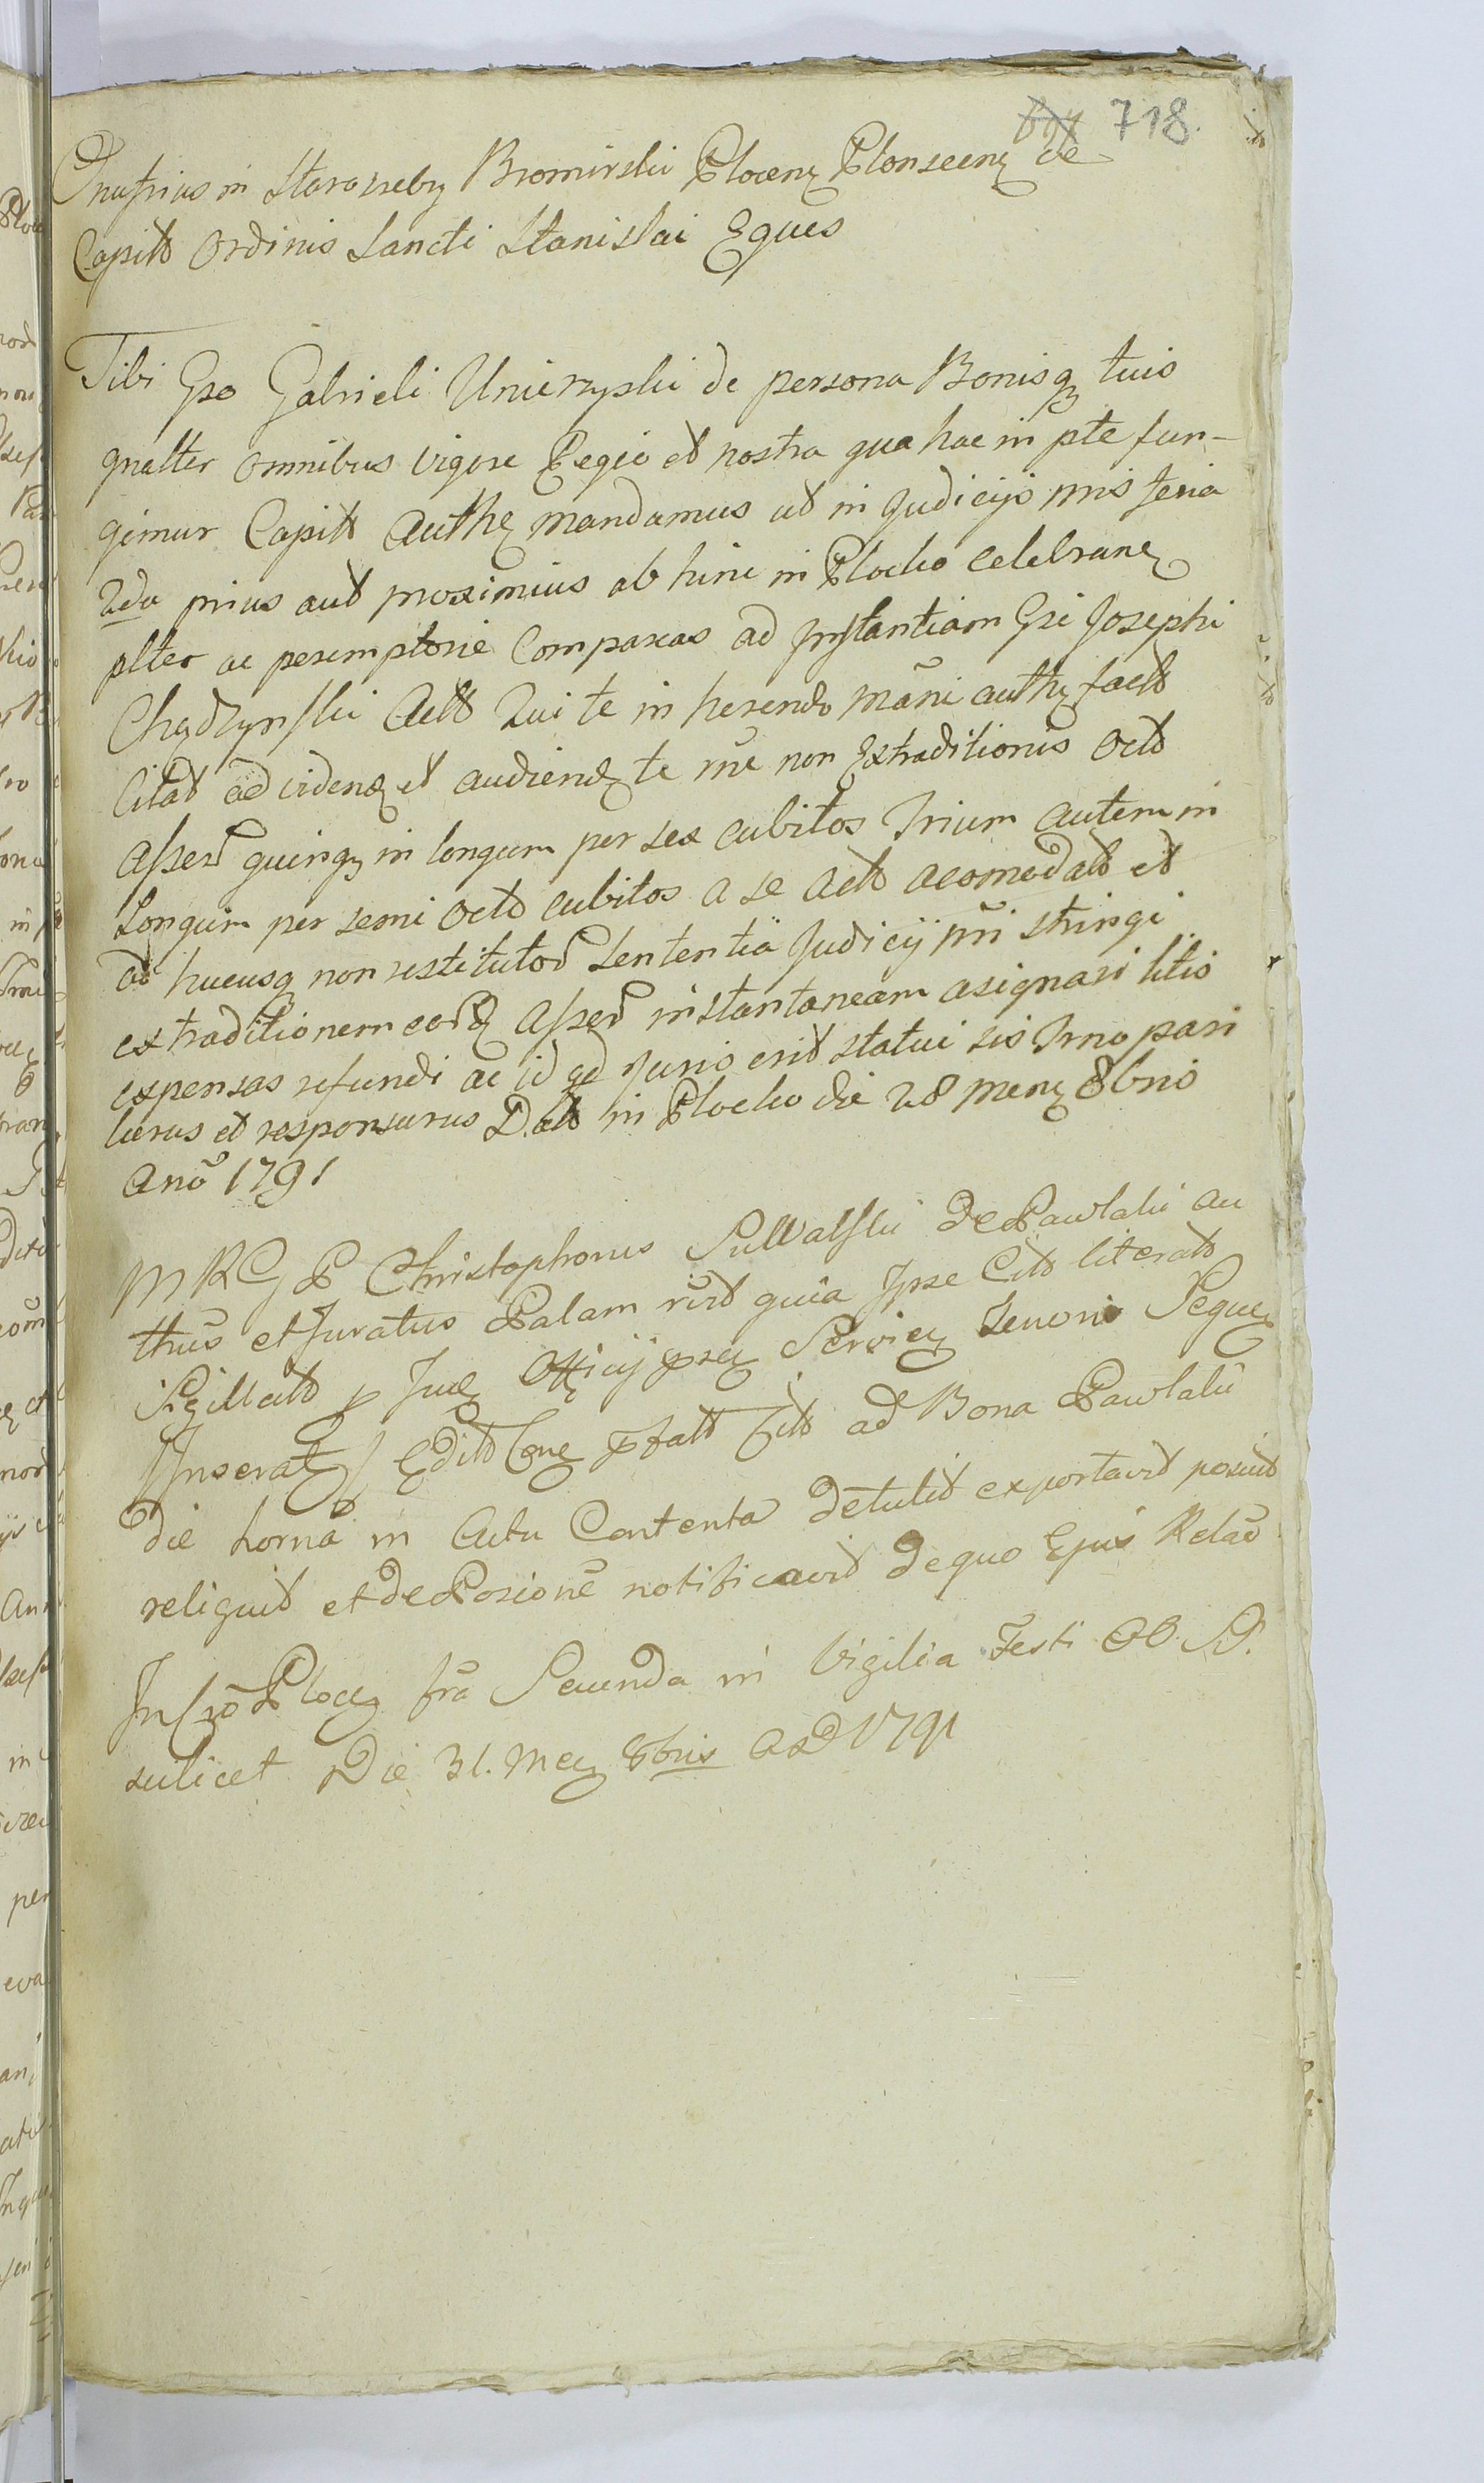 718.
Onufrius in Starozreby Bromirski Plocenz Plonscenz etc
Capitt Ordinis Sancti Stanislai Eques
Tibi Gso Gabrieli Unierzyski de persona Bonisqz tuis
gnalter omnibus vigore Regio et nostra qua hac in pte fun-
gimur Capitt Authe mandamus ut in Judicijs nris feria
2da prius aut proximius ab hinc in Plocko celebranz
plter ac peremptorie Compareas ad Instantiam Gsi Josephi
Chądzynski Actt Qui te in herendo mãni authz factt
Citat ad videnz et audienz te rñe non Extraditionis Octo
Asserũ quinqz in longum per sex cubitos Trium autem in
Longum per semi Octo cubitos a se Actt acomodatt et
ad hucusqz non restitutor Sententia Judicij nri stringi
extraditionem eorz Asserũ instantaneam asignari litis
expensas refundi ac id qd Juris erit statui sis Trno pari
turus et responsurus Datt in Plocko die 28 menz 8bris
Anõ 1791
MRG P Christophorus Suwalski de Pawlaki au
thus et Juratus Palam rũit quia Ipse Citt literatt
Sigillatt p Juz Officij psz Servicz Tenoris Sequez
/Inseratz/ Editt Conz pfatt Citt ad Bona Pawlaki
die horna in Actu Contenta detulit exportavit posuit
reliquit et de Posione notificavit de quo Ejus Relaõ
Insro Plocz fra Secunda in Vigilia Festi OO. SS.
scilicet Die 31. Mez 8bris AD 1791